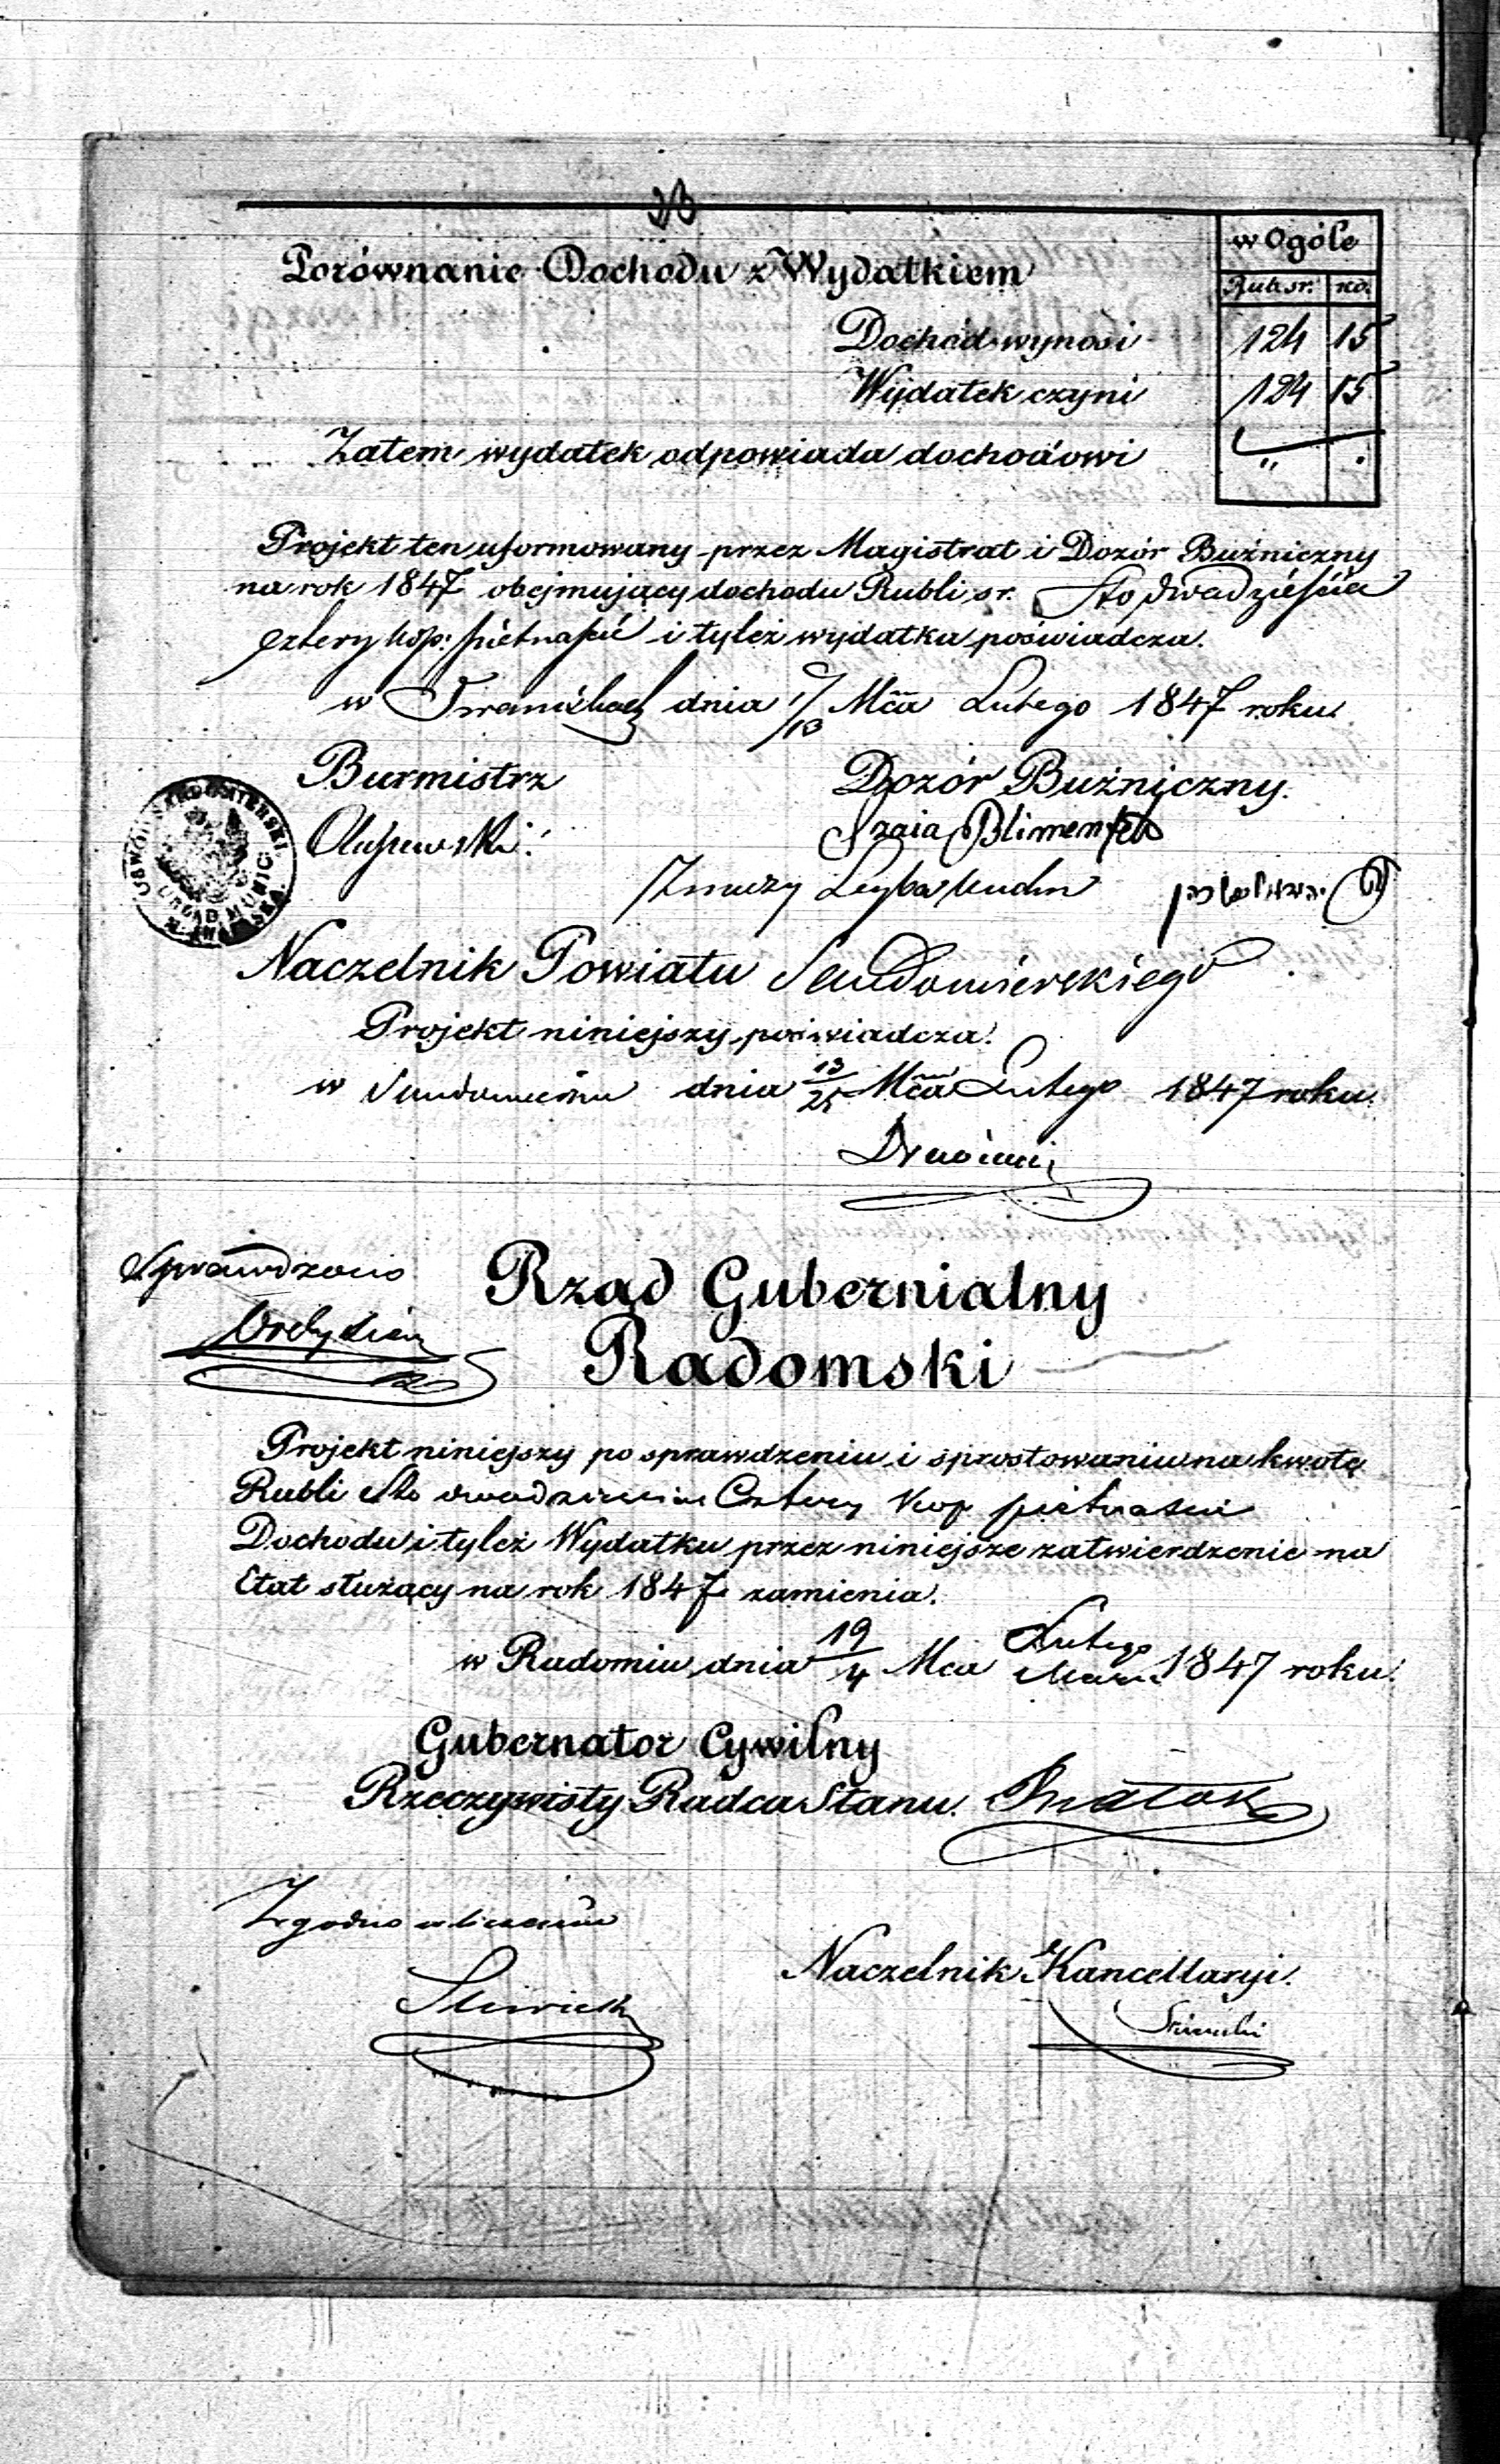 23
w Ogóle
Porównanie Dochodu z Wydatkiem
Rub. sr. ko.
Dochód wynosi 124 15
Wydatek czyni 124 15
Zatem wydatek odpowiada dochodowi " .
Projekt ten uformowany przez Magistrat i Dozór Bużniczny
na rok 1847 obejmujący dochodu Rubli sr. Sto dwadzieścia
cztery kop: piętnaście i tyleż wydatku poświadcza.
w Iwaniskach dnia 1/13 Mca Lutego 1847 roku.
Burmistrz Dozór Bużniczny.
Szaia Blimenfeld
Leyba
Naczelnik Powiatu Sandomierskiego
Projekt niniejszy poświadcza.
w Sandomierzu dnia 13/25 Mca Lutego 1847 roku.
Sprawdzono
Rząd Gubernialny
Radomski
Projekt niniejszy po sprawdzeniu i sprostowaniu na kwotę
Rubli Sto dwadzieścia Cztery kop piętnaście
Dochodu i tyleż Wydatku przez niniejsze zatwierdzenie na
Etat służący na rok 1847 zamienia.
w Radomiu dnia 19/4 Mca Lutego/Marca 1847 roku.
Gubernator Cywilny
Rzeczywisty Radca Stanu. Białoskó
Zgodno
Naczelnik Kancellaryi.